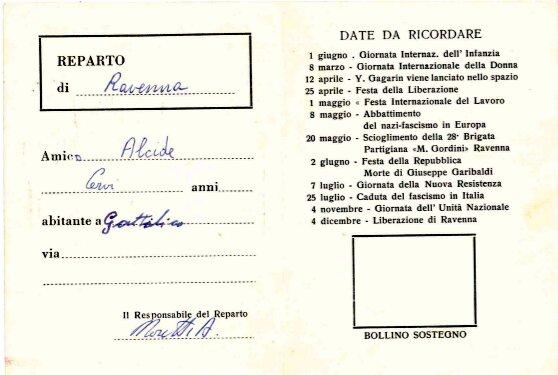 REPARTO
di Ravenna
Amico Alcide
Cervi anni
abitante a Gattatico
via
Il Responsabile del Reparto
Moretti A.
DATE DA RICORDARE
1 giugno . Giornata Internaz. dell' Infanzia
8 marzo - Giornata Internazionale della Donna
12 aprile - Y. Gagarin viene lanciato nello spazio
25 aprile - Festa della Liberazione
1 maggio « Festa Internazionale del Lavoro
8 maggio - Abbattimento
del nazi-fascismo in Europa
20 maggio - Scioglimento della 28ª Brigata
Partigiana «M. Gordini» Ravenna
2 glugno - Festa della Repubblica
Morte di Giuseppe Garibaldi
7 luglio - Giornata della Nuova Resistenza
25 luglio - Caduta del fascismo in Italia
4 novembre - Giornata dell' Unità Nazionale
4 dicembre - Liberazione di Ravenna
BOLLINO SOSTEGNO